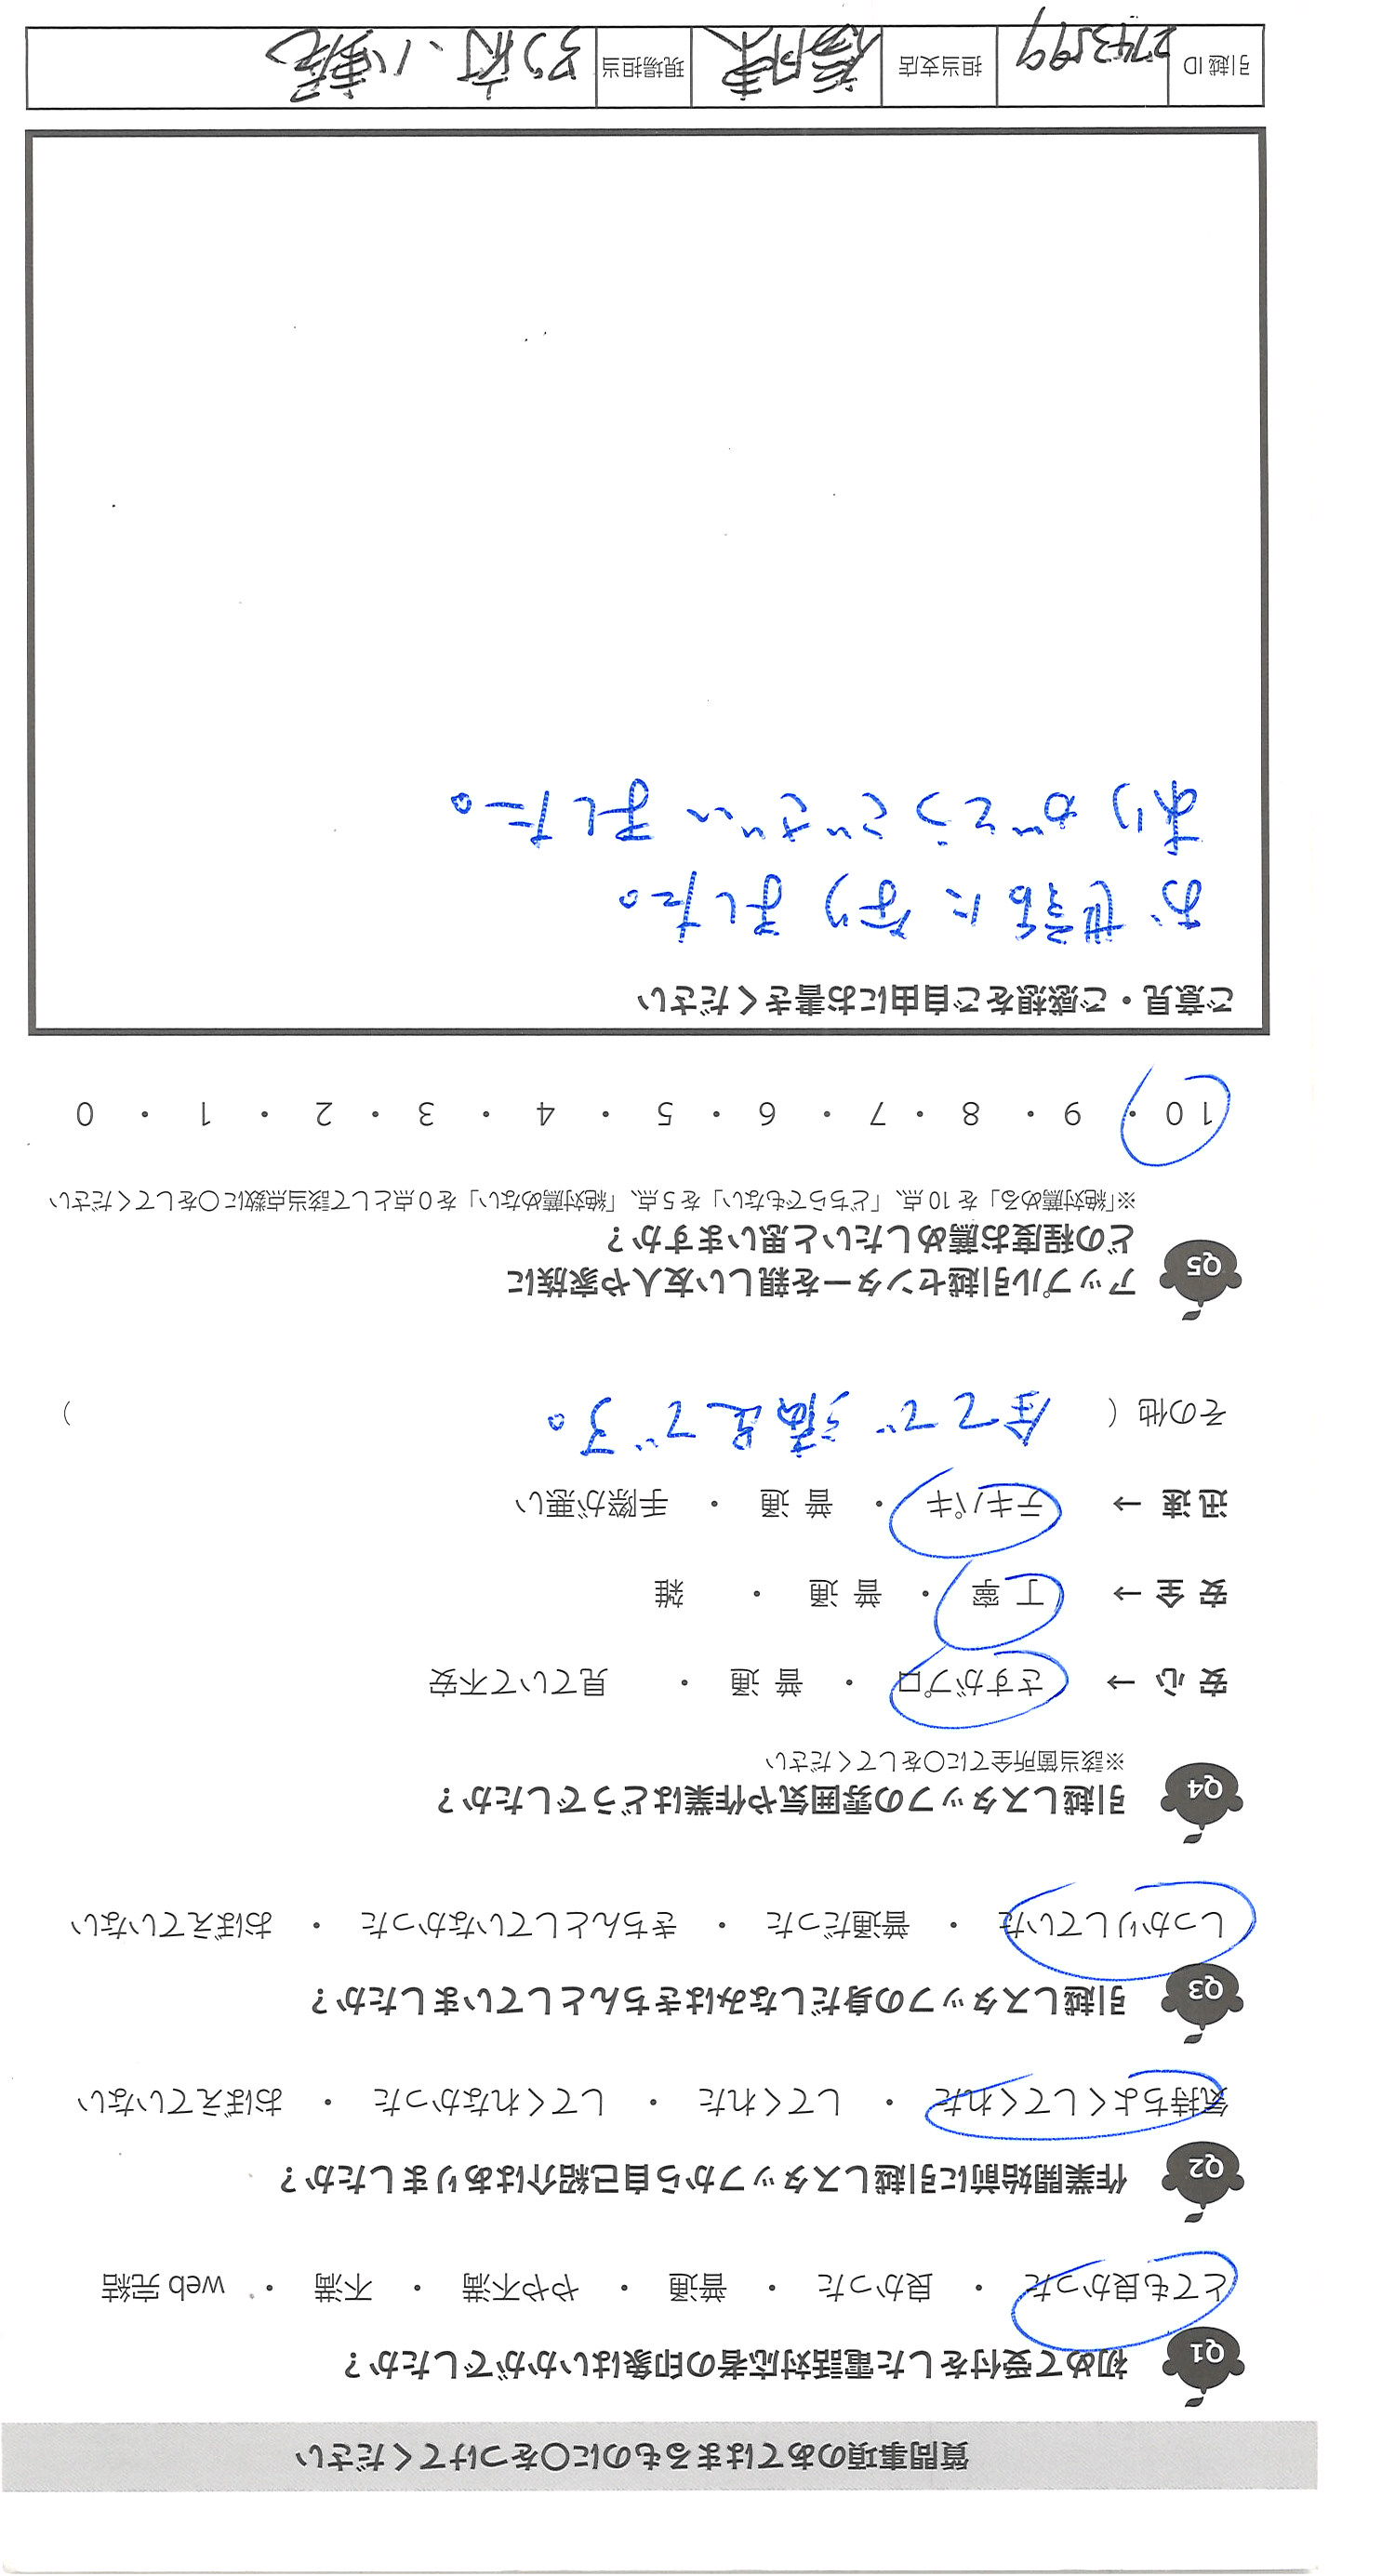 質問事項のあてはまるものに〇をつけてください
Q1 初めて受付をした電話対応者の印象はいかがでしたか？
とても良かった ・ 良かった ・ 普通 ・ やや不満 ・ 不満 ・ web 完結
Q2 作業開始前に引越しスタッフから自己紹介はありましたか？
気持ちよくしてくれた ・ してくれた ・ してくれなかった ・ おぼえていない
Q3 引越しスタッフの身だしなみはきちんとしていましたか？
しっかりしていた ・ 普通だった ・ きちんとしていなかった ・ おぼえていない
Q4 引越しスタッフの雰囲気や作業はどうでしたか？
※該当箇所全てに〇をしてください
安 心 → さすがプロ ・ 普 通 ・ 見ていて不安
安 全 → 丁 寧 ・ 普 通 ・ 雑
迅 速 → テキパキ ・ 普 通 ・ 手際が悪い
その他 （ 全てで満足です。 ）
Q5 アップル引越センターを親しい友人や家族に
どの程度お薦めしたいと思いますか？
※「絶対薦める」を 10 点、「どちらでもない」を 5 点、「絶対薦めない」を 0 点として該当点数に〇をしてください
10 ・ 9 ・ 8 ・ 7 ・ 6 ・ 5 ・ 4 ・ 3 ・ 2 ・ 1 ・ 0
ご意見・ご感想をご自由にお書きください
お世話になりました。
ありがとうございました。
引越 ID 担当支店 現場担当